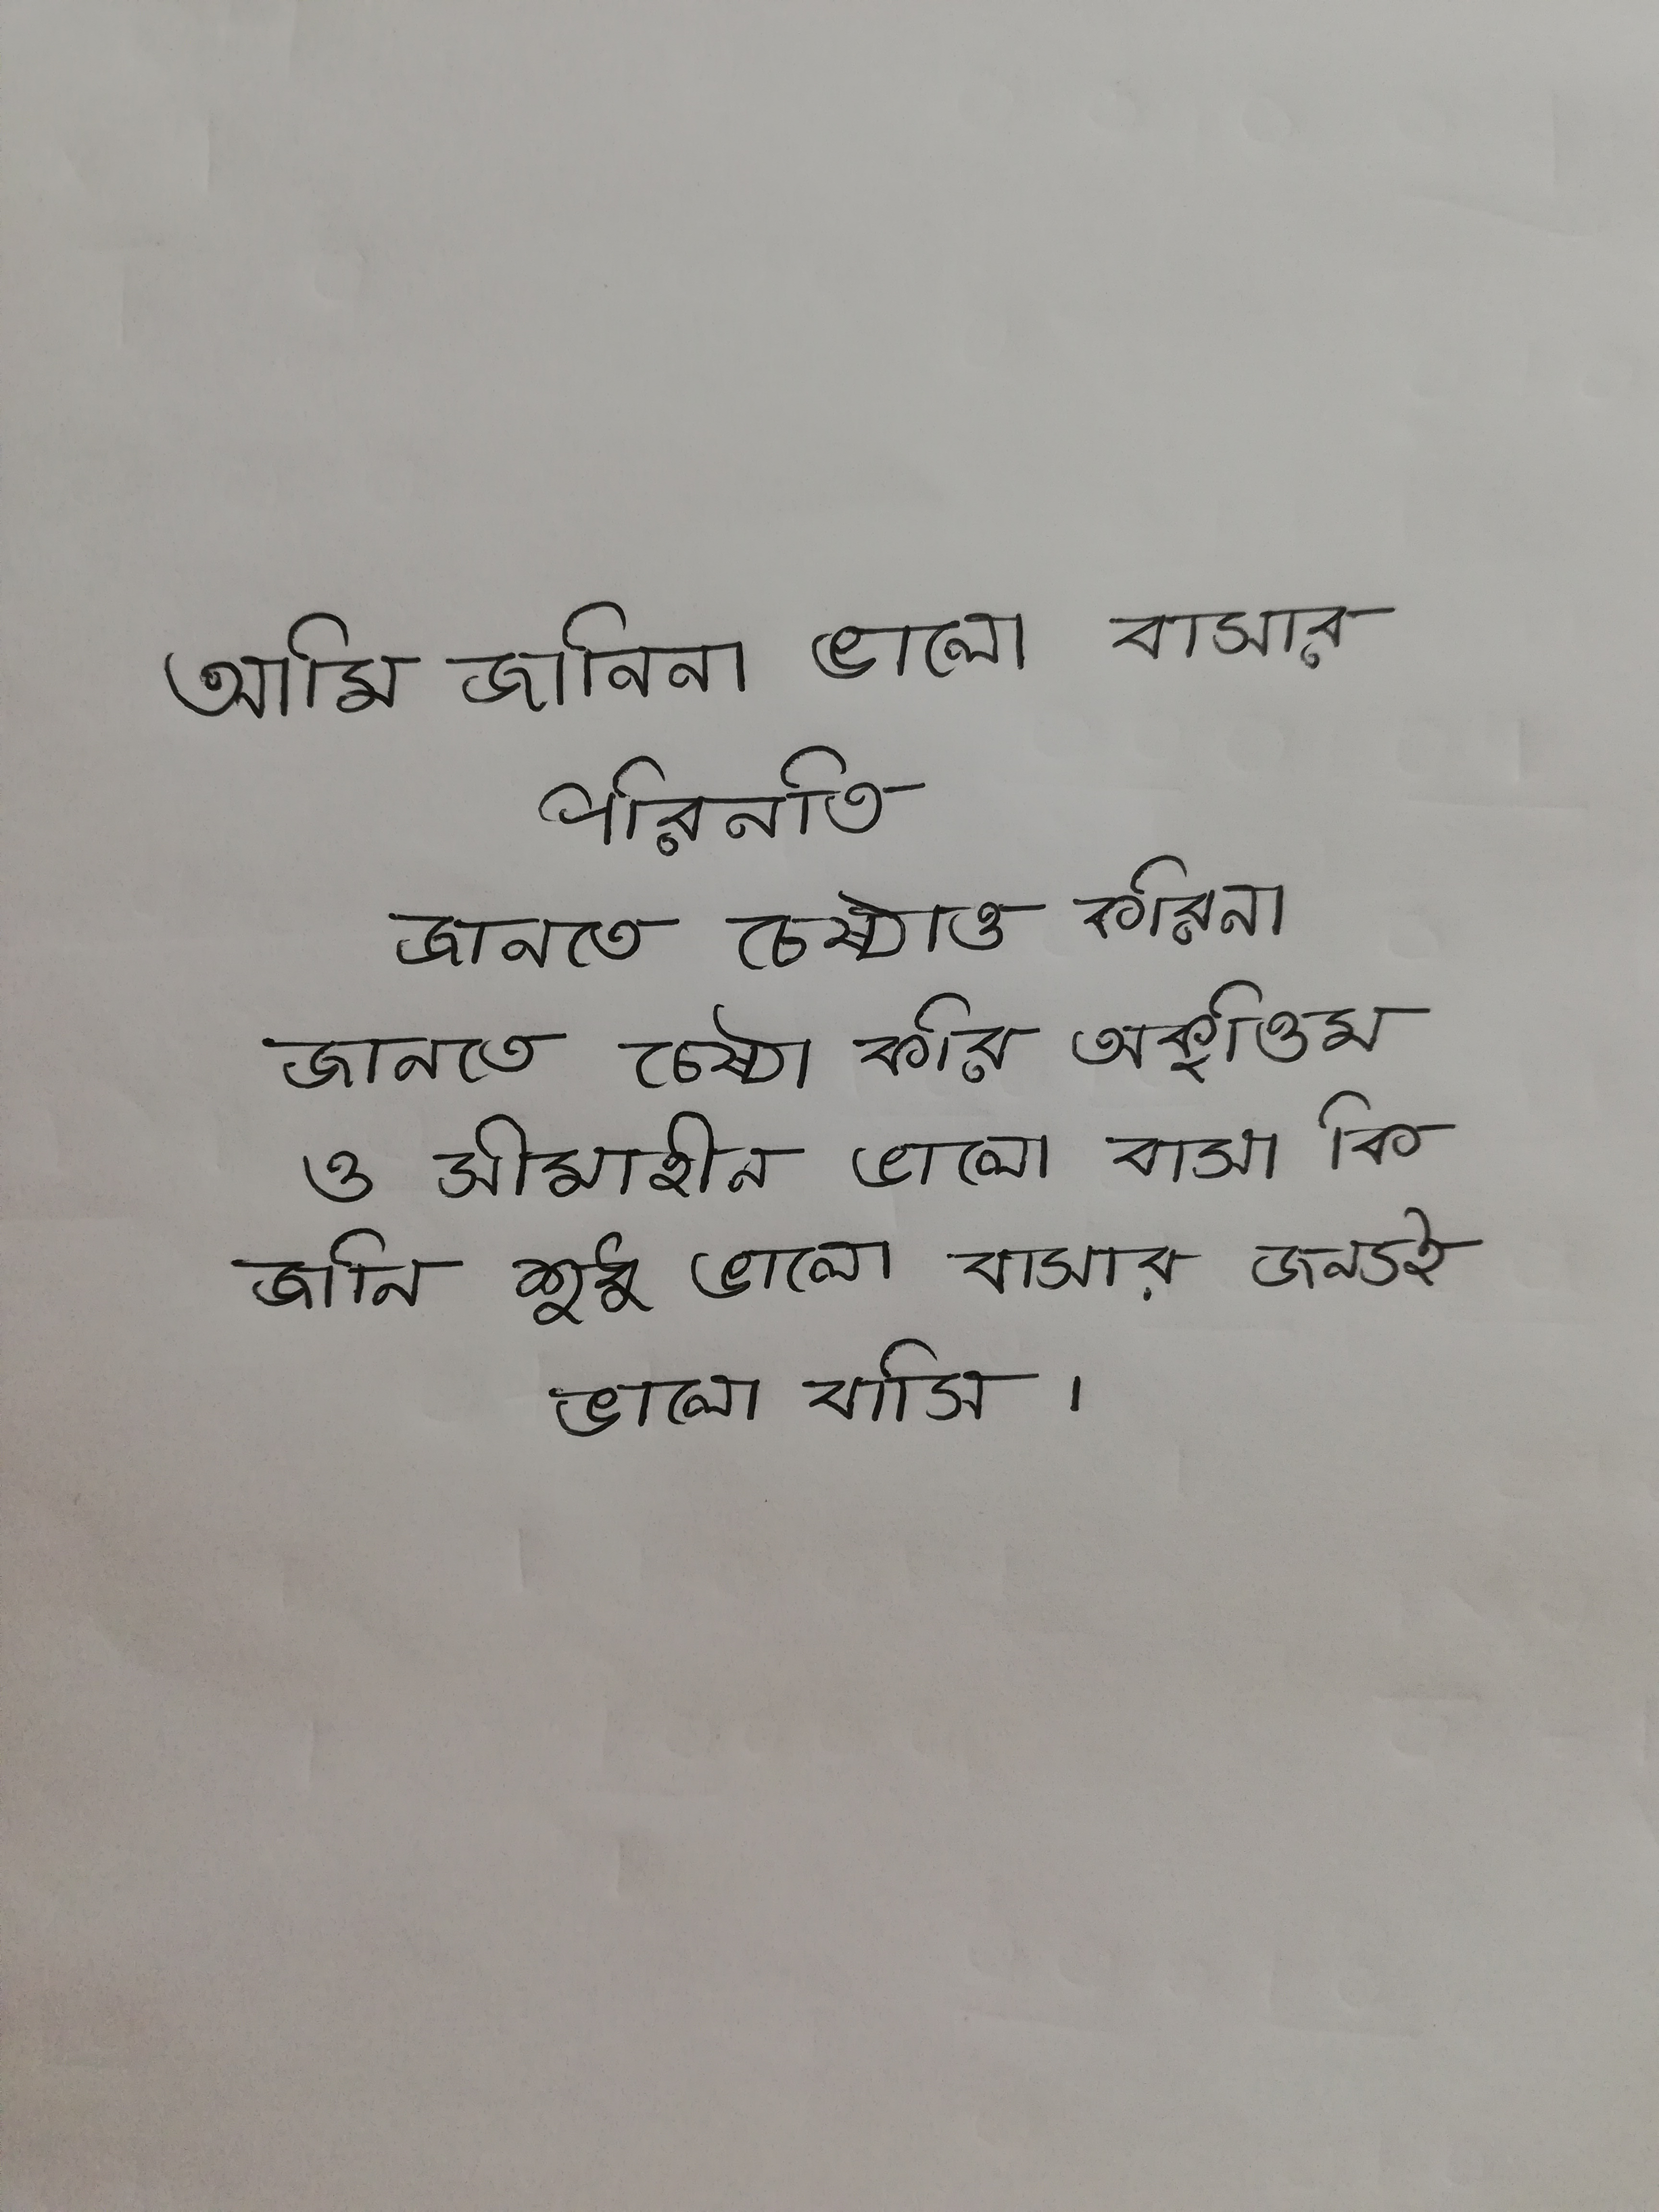 আমি জানিনা ভালো বাসার
পরিনতি
জানতে চেষ্টাও করিনা
জানতে চেষ্টা করি অকৃত্তিম
ও সীমাহীন ভালো বাসা কি
জানি শুধু ভালো বাসার জন্যই
ভালো বাসি ।